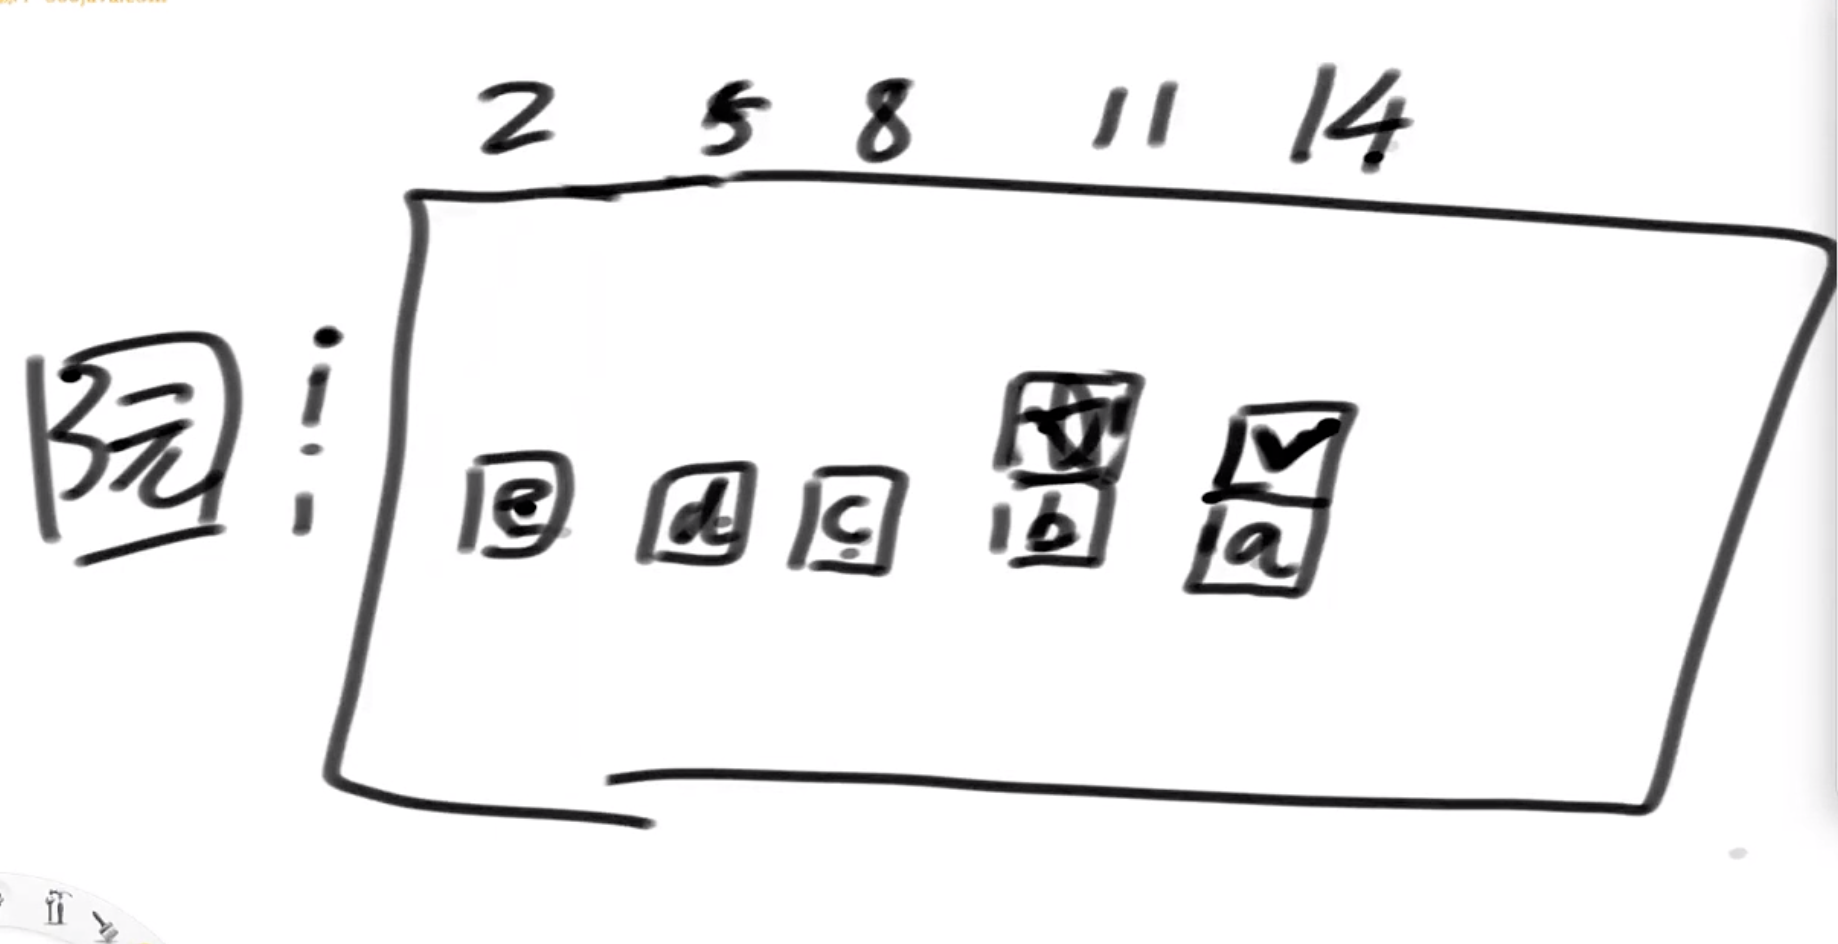 2 5 8 11 14
院
e d c b a